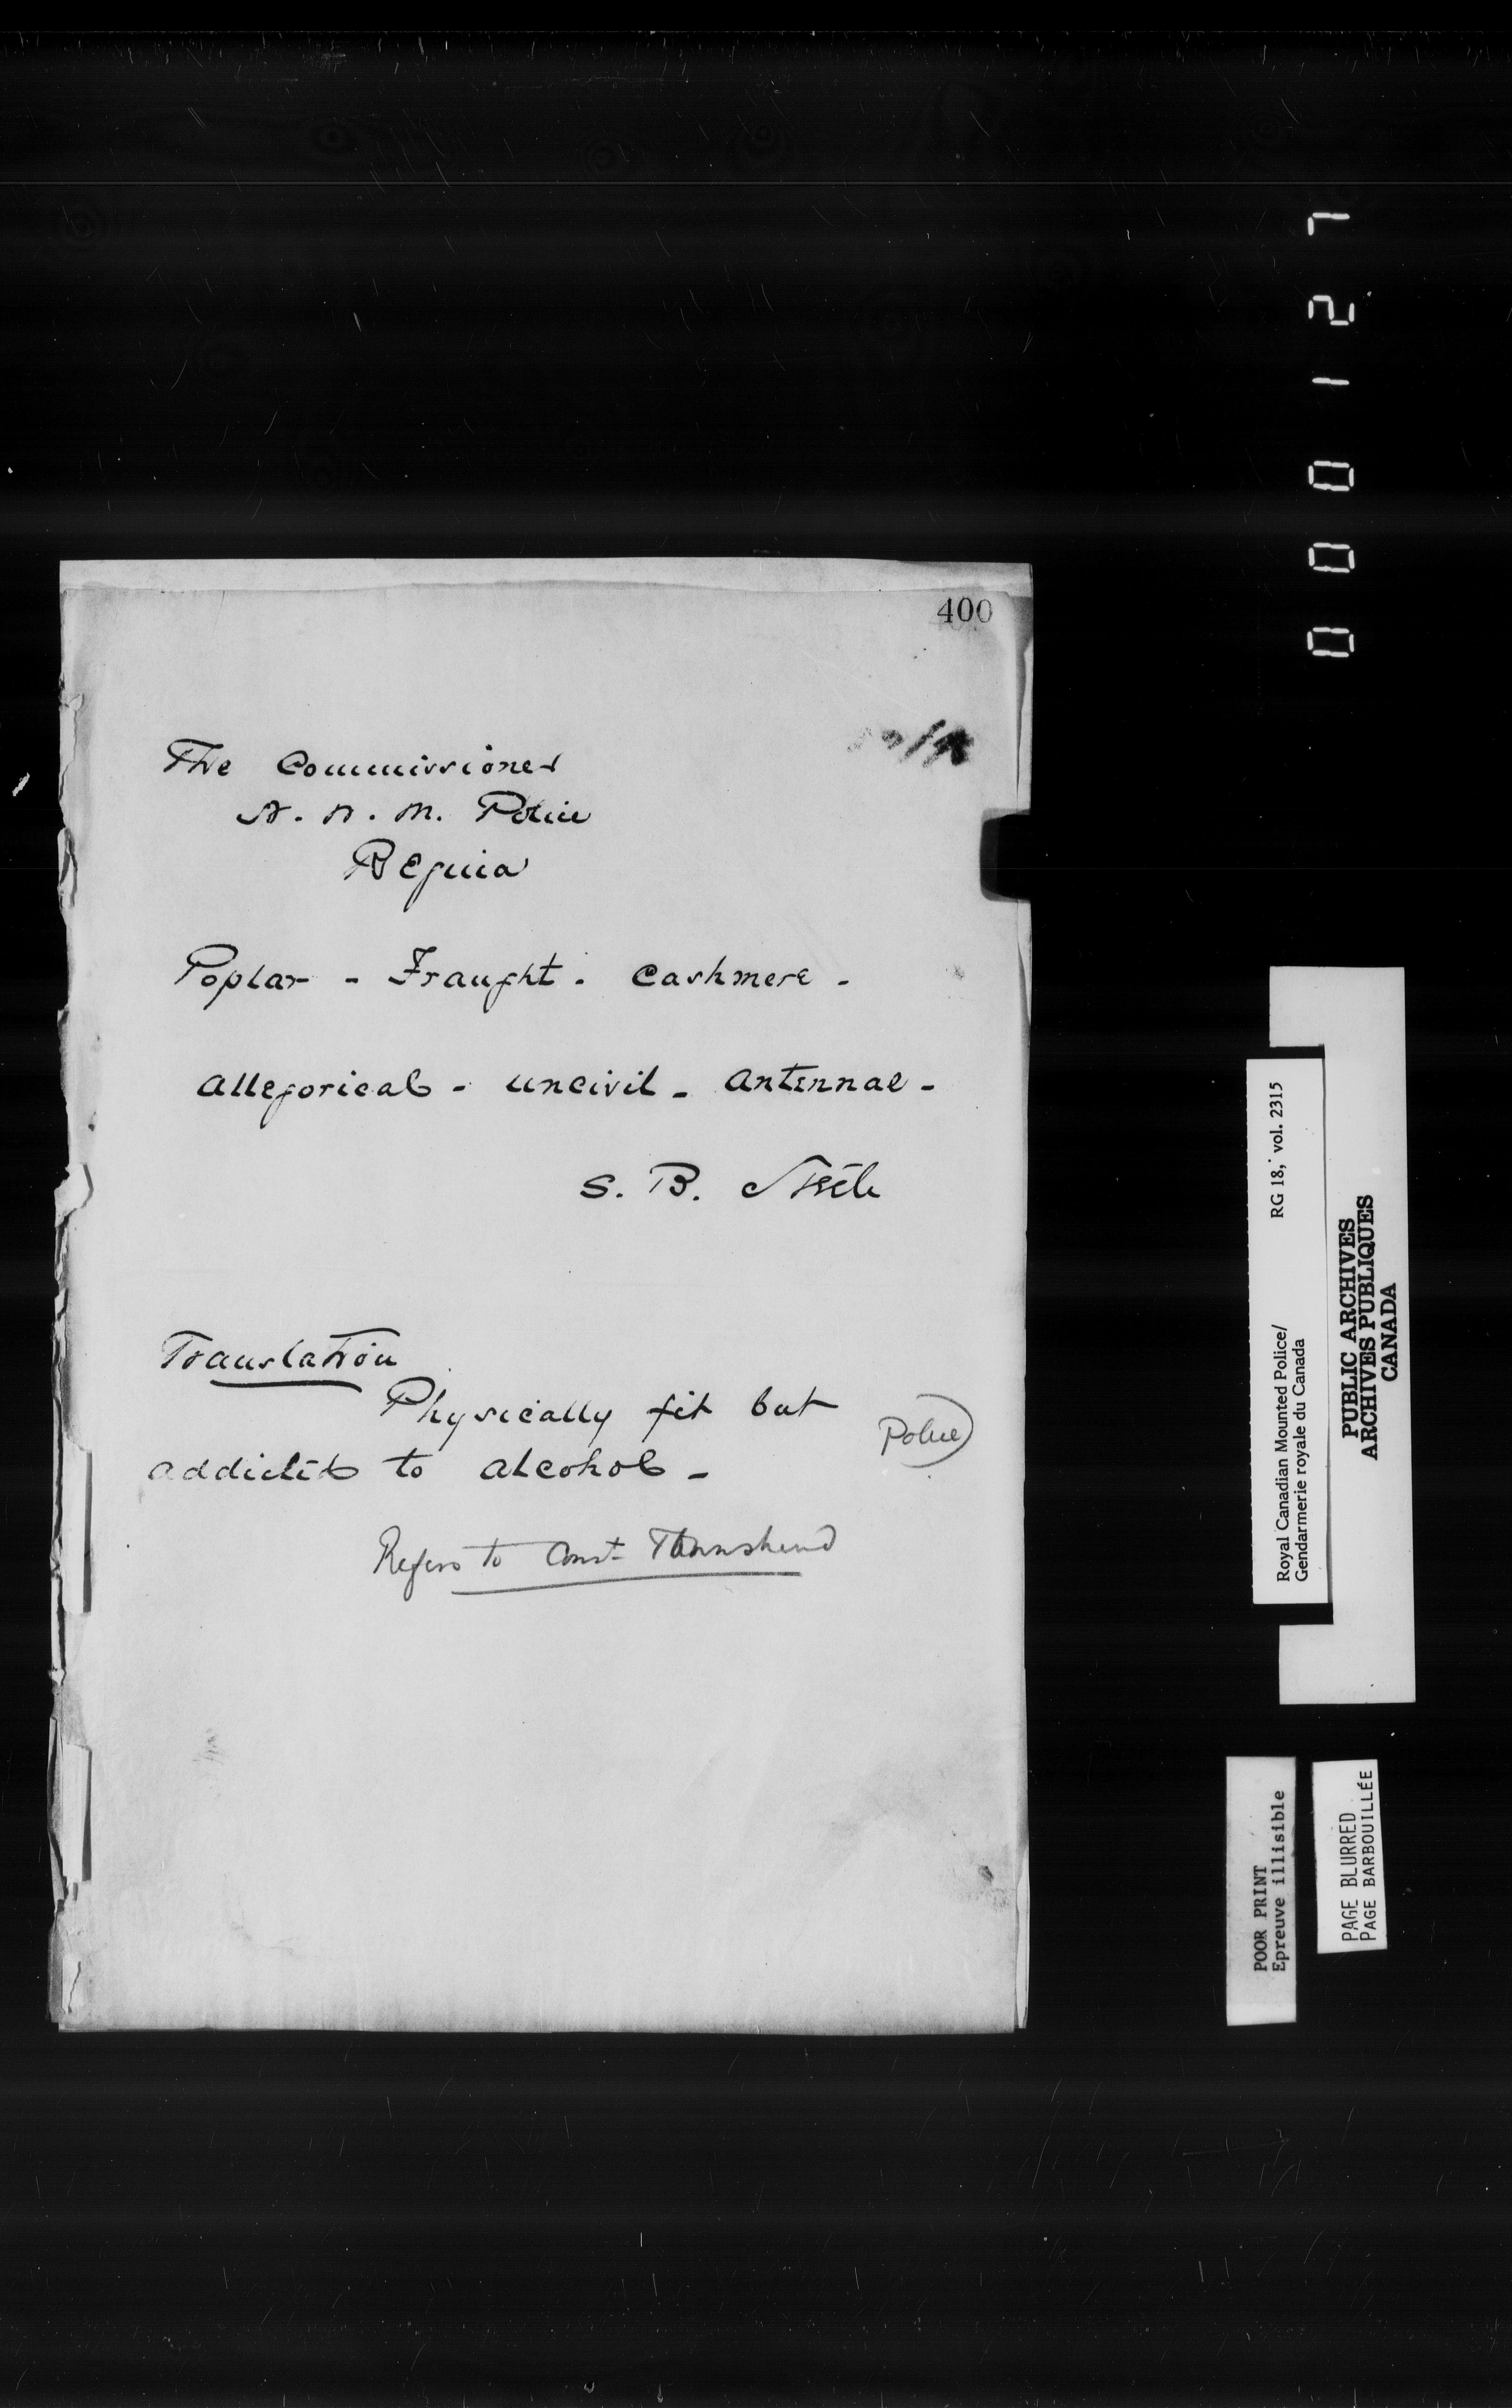 400
The Commissioner
N. W. M. Police
Regina
Poplar - Fraught - Cashmere -
Allegorical - uncivil - antennae -
S. B. Steele
Translation
Physically fit but
addicted to alcohol -
Police)
Refers to Const Townshend
000127
Royal Canadian Mounted Police/ RG 18, vol. 2315
Gendarmerie royale du Canada
PUBLIC ARCHIVES
ARCHIVES PUBLIQUES
CANADA
POOR PRINT
Epreuve illisible
PAGE BLURRED
PAGE BARBOUILLÉE